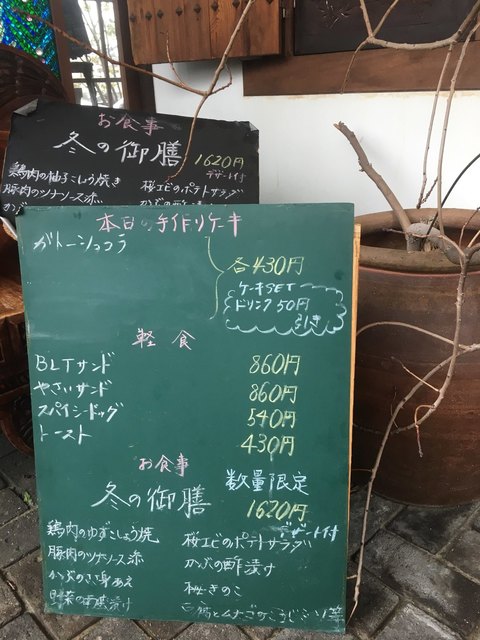 お食事
冬の御膳 1620円
デザート付
鶏肉の柚子こしょう焼き
豚肉のツナソース添
桜エビのポテトサラダ
本日の手作りケーキ
ガトーショコラ
各430円
ケーキSET
ドリンク50円
引き
軽食
BLTサンド 860円
やさいサンド 860円
スパイシードッグ 540円
トースト 430円
お食事 数量限定
冬の御膳 1620円
デザート付
鶏肉のゆずこしょう焼
豚肉のツナソース添
かぶのささ身あえ
野菜の
桜エビのポテトサラダ
かぶの酢漬け
きのこ